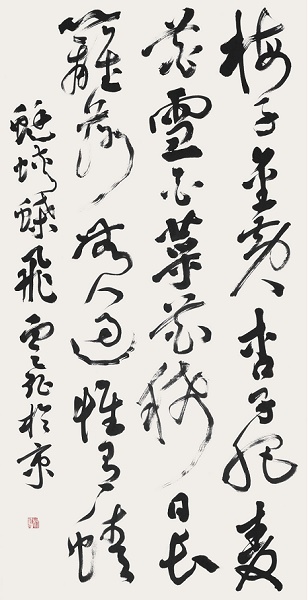 梅子金黄杏子肥麦
花雪白菜花稀日长
籬落無人過惟有蜻
蜓蛱蝶飛 於京